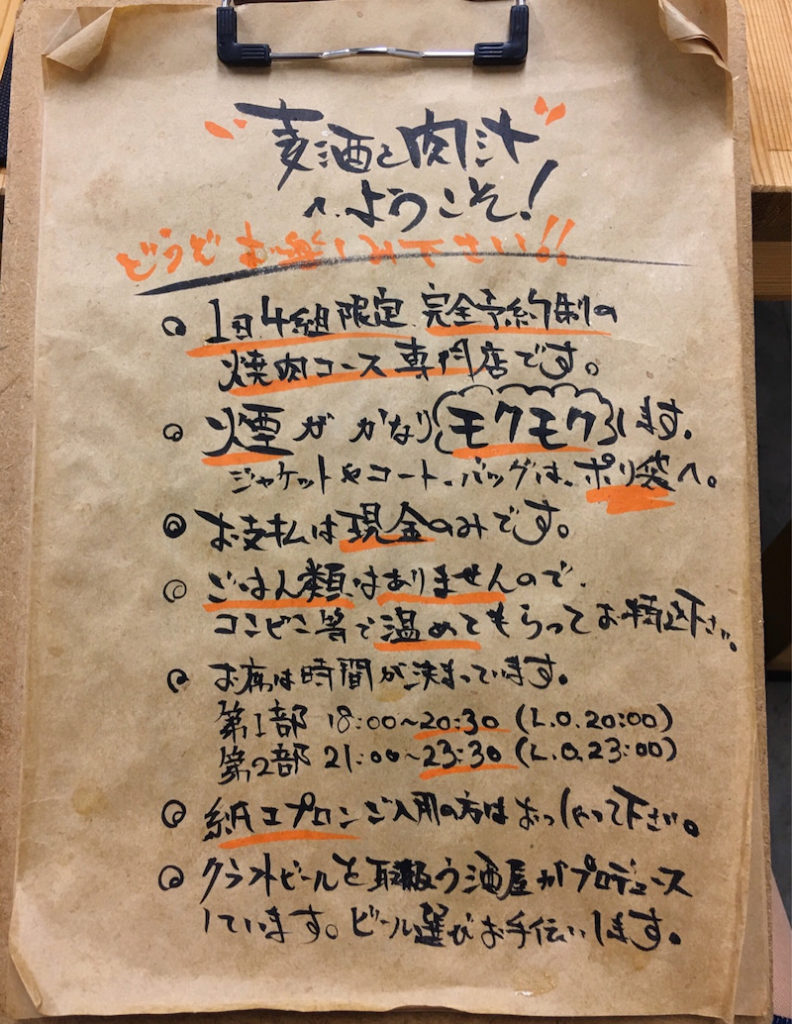 "麦酒と肉汁"
へようこそ!
どうぞお楽しみ下さい!!
1日4組限定 完全予約制の
焼肉コース専門店です。
煙がかなりモクモクします。
ジャケットやコート、バッグは、ポリ袋へ。
お支払は現金のみです。
ごはん類はありませんので、
コンビニ等で温めてもらってお持込下さい。
お席は時間が決まっています。
第1部 18:00~20:30 (L.O.20:00)
第2部 21:00~23:30 (L.O.23:00)
紙エプロンご入用の方はおっしゃって下さい。
クラフトビールを取扱う酒屋がプロデュース
しています。ビール選びお手伝いします。